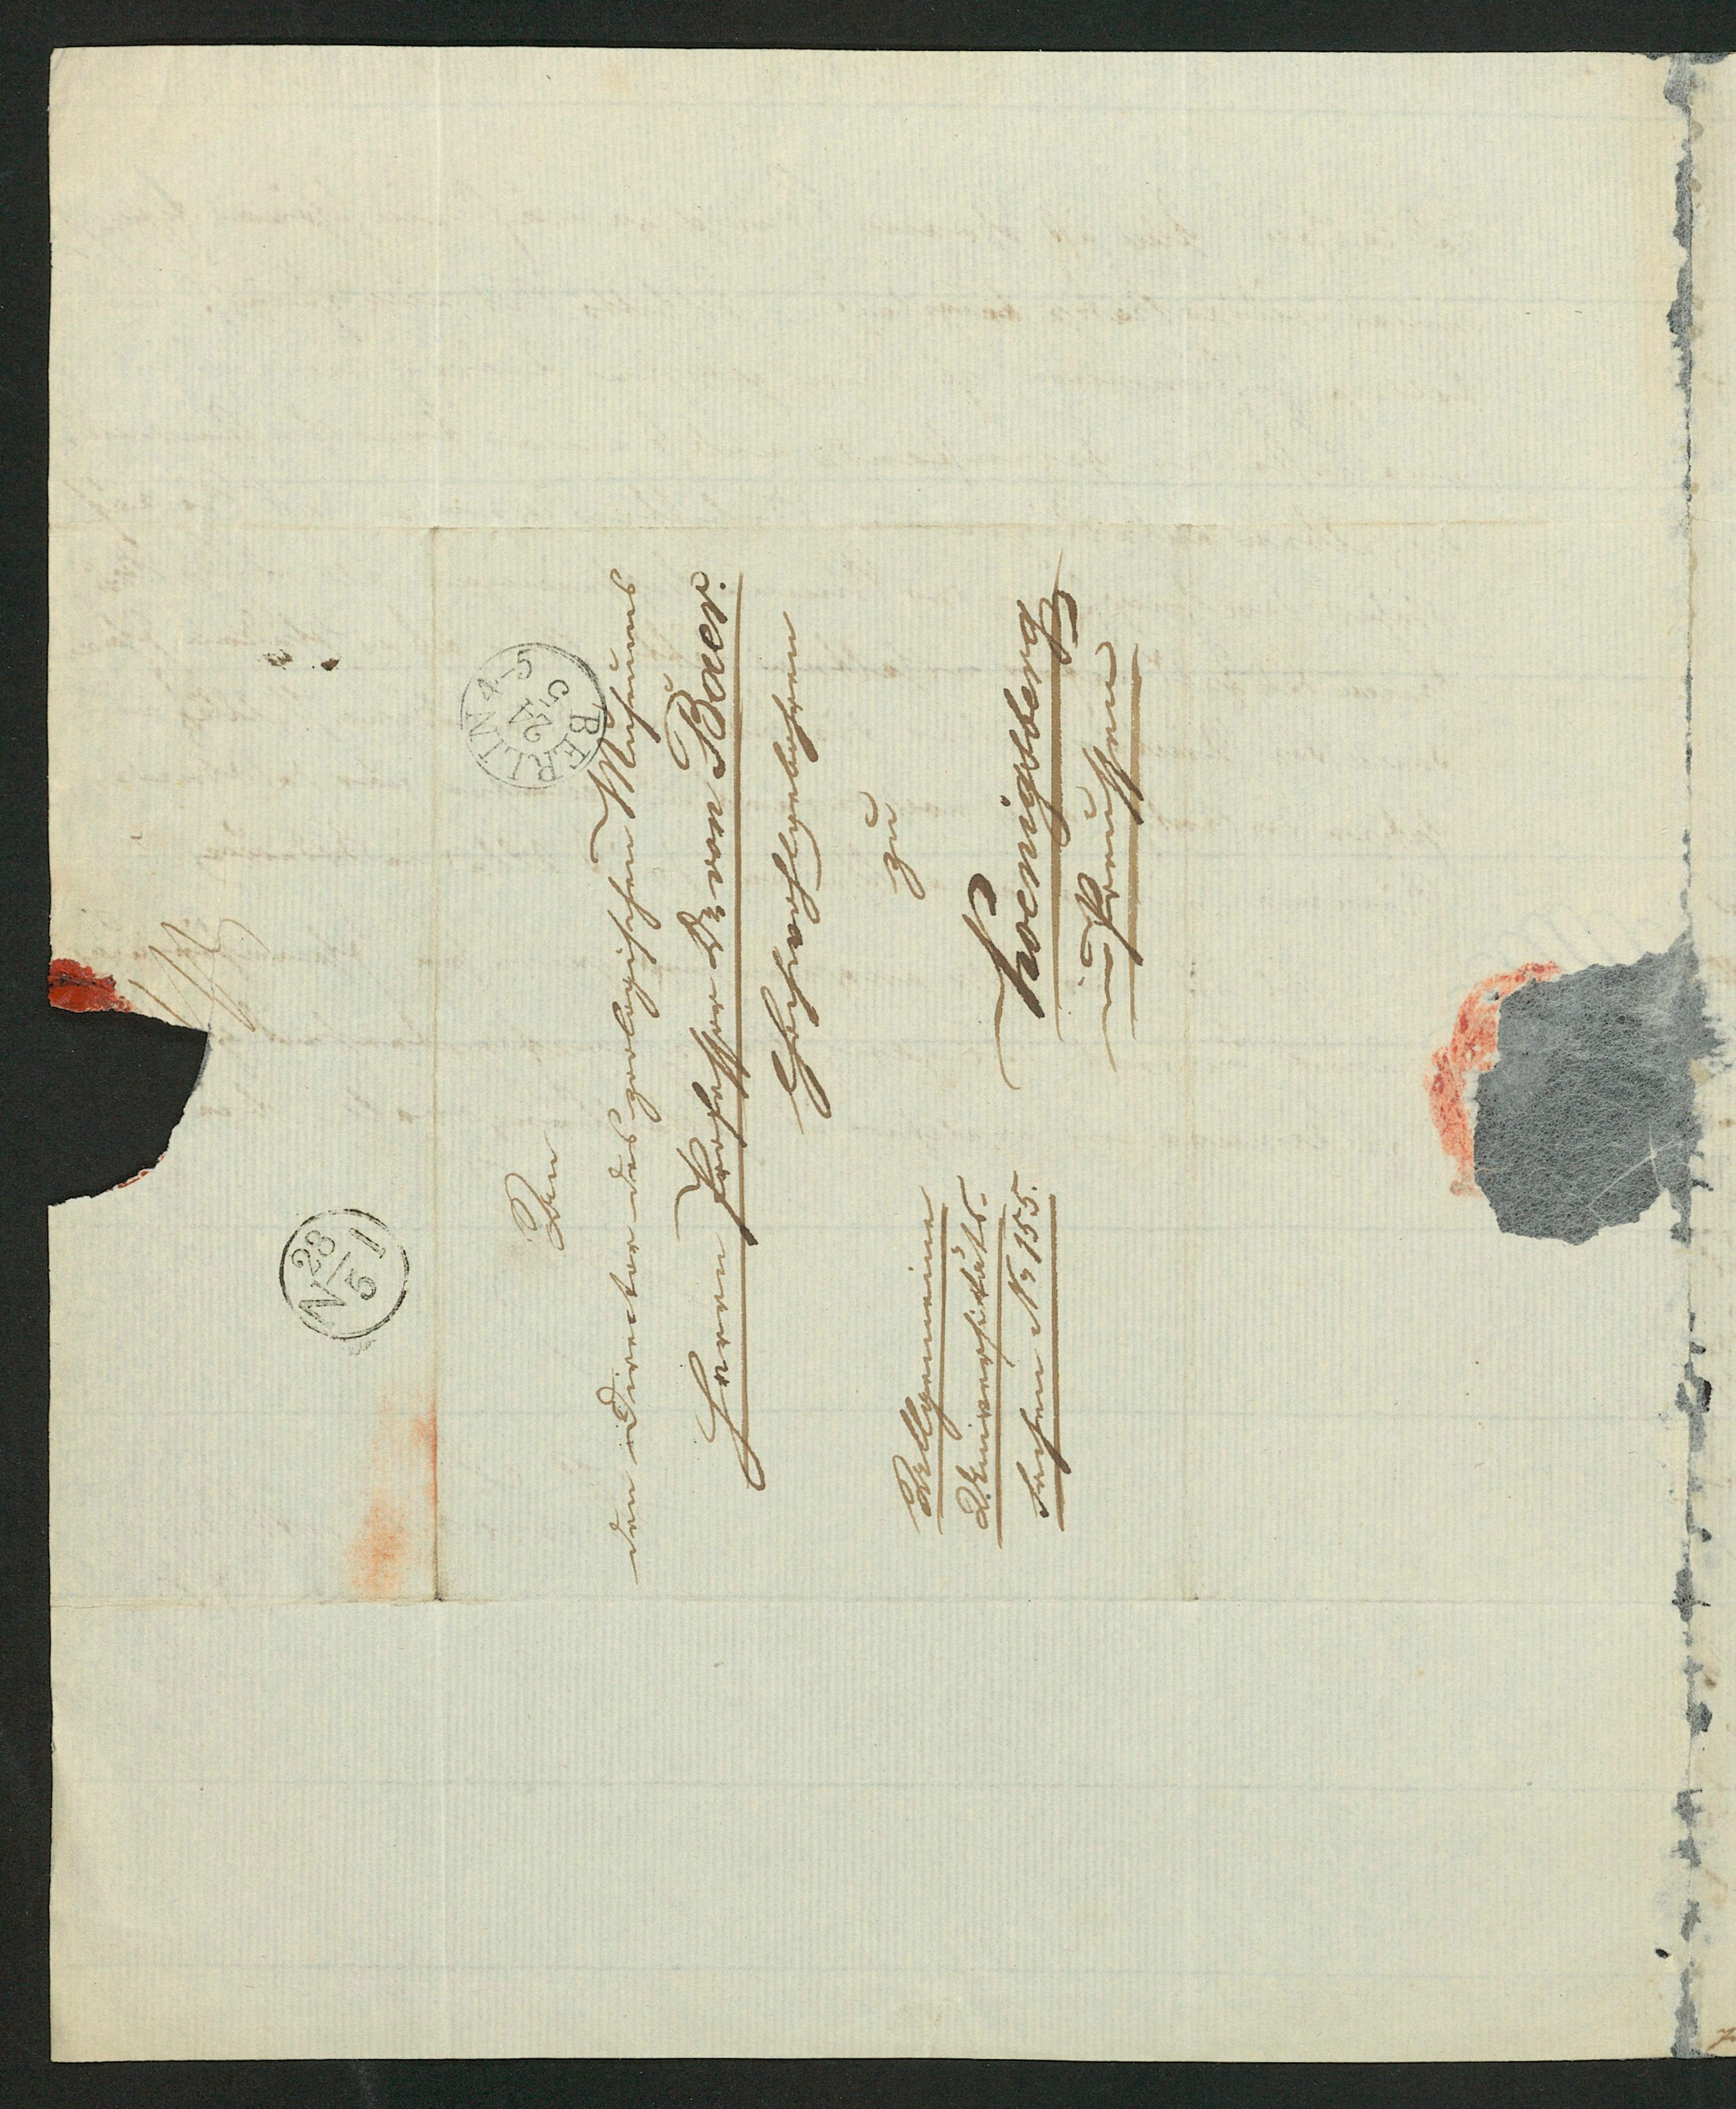 An
den Director des zoologischen Museums
Herrn Professor Dr. von Baer.
Hochwohlgebohren
zu
Koenigsberg
in Preussen
Allgemeine
Universitäts-
sachen No 155.
BERLIN 4-5
24
5
N 1
28
5